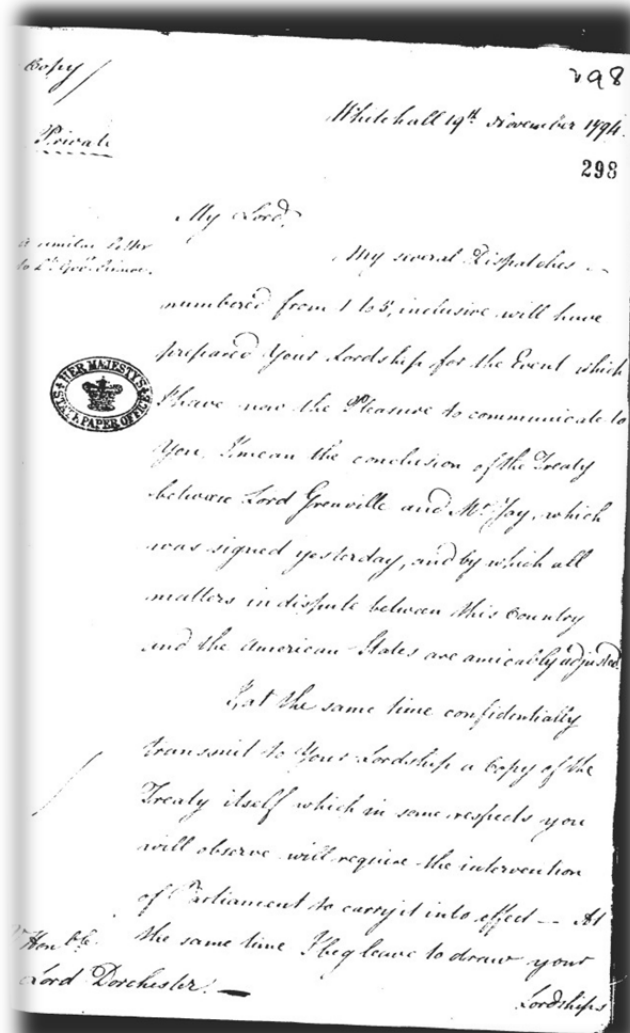 Copy
298
Whitehall 19th November 1794.
Private
298
My Lord,
a similar Letter
to Lt. Govr. Simcoe.
My several Dispatches
numbered from 1 to 5, inclusive will have
prepared Your Lordship for the Event which
HER MAJESTY'S
STATE PAPER OFFICE
I have now the Pleasure to communicate to
You. I mean the conclusion of the Treaty
between Lord Grenville and Mr. Jay, which
was signed yesterday, and by which all
matters in dispute between this Country
and the American States are amicably adjusted.
I, at the same time confidentially
transmit to Your Lordship a Copy of the
Treaty itself which in some respects you
will observe will require the intervention
of Parliament to carry it into effect — At
the same time I beg leave to draw your
Honble.
Lord Dorchester. —
Lordships